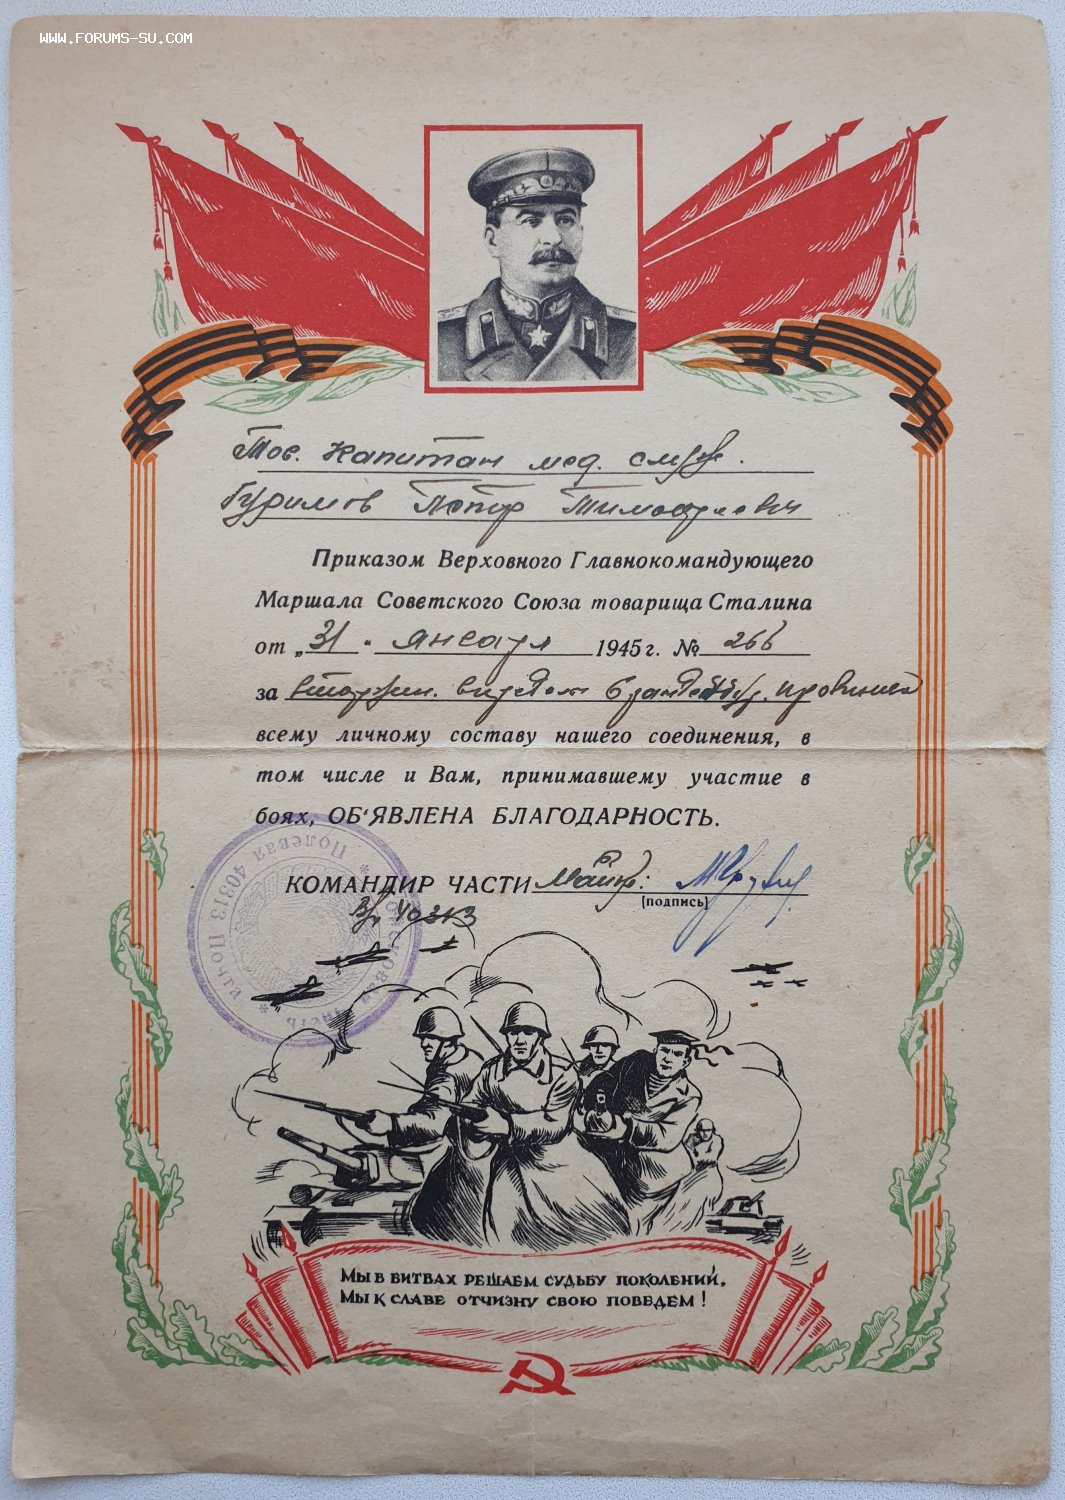 WWW.FORUMS-SU.COM
Тов. Капитан мед. служ.
Гуримов Петр Тимофеевич
Приказом Верховного Главнокомандующего
Маршала Советского Союза товарища Сталина
от „31“ января 1945 г. № 266
за вторжен. в предел Бранденбург. провинцией
всему личному составу нашего соединения, в
том числе и Вам, принимавшему участие в
боях, ОБ‘ЯВЛЕНА БЛАГОДАРНОСТЬ.
КОМАНДИР ЧАСТИ Майор:
(подпись)
В/ч 40313
Войсковая часть * Полевая почта 40313 *
МЫ В БИТВАХ РЕШАЕМ СУДЬБУ ПОКОЛЕНИЙ,
МЫ К СЛАВЕ ОТЧИЗНУ СВОЮ ПОВЕДЕМ!